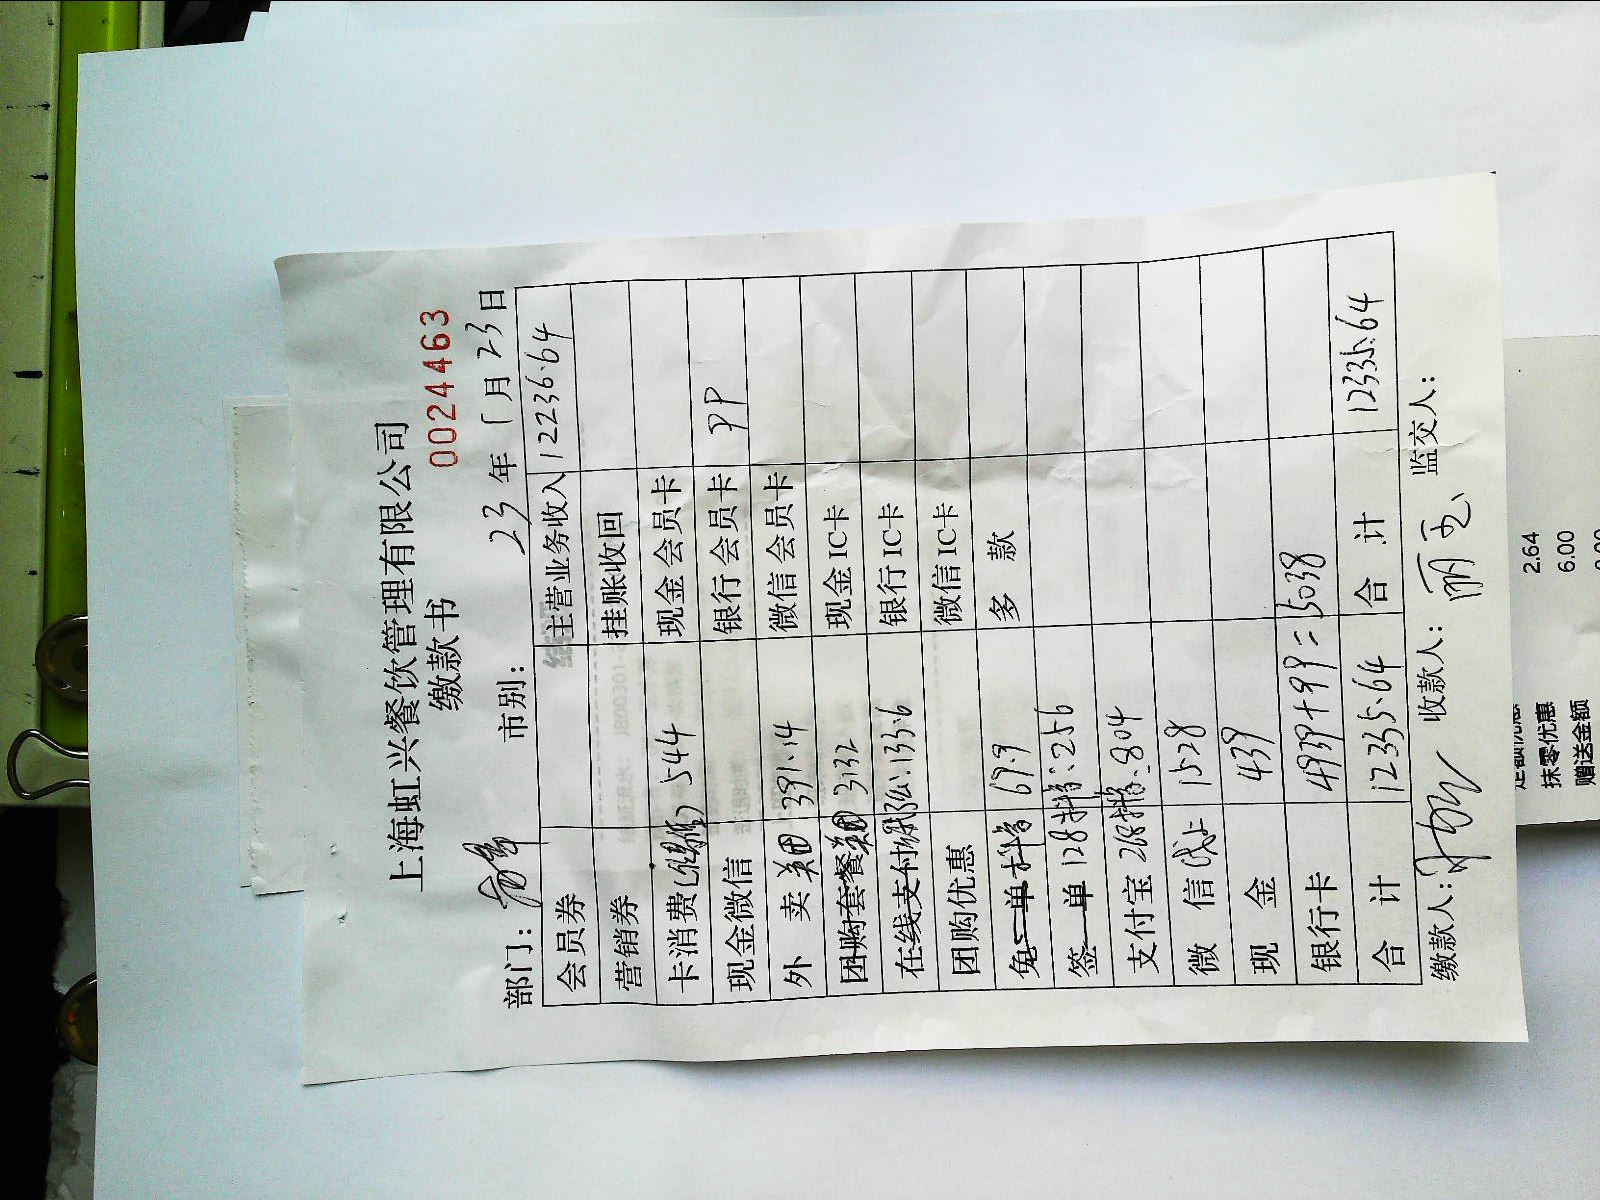 上海虹兴餐饮管理有限公司
缴款书
0024463
部门：
市别：
23年1月23日
会员券 主营业务收入 12236.64
营销券 挂账收回
卡消费 544 现金会员卡
现金微信 银行会员卡 99
外 卖 美团 391.14 微信会员卡
团购套餐 美团 3132 现金IC卡
在线支付 133.6 银行IC卡
团购优惠 微信IC卡
免 单 抖音 69.9 多 款
签 单 128抖音：256
支付宝 268抖音：804
微 信 线上 1528
现 金 439
银行卡 4939+99=5038
合 计 12335.64 合 计 12335.64
缴款人：
收款人：
监交人：
2.64
6.00
抹零优惠
赠送金额